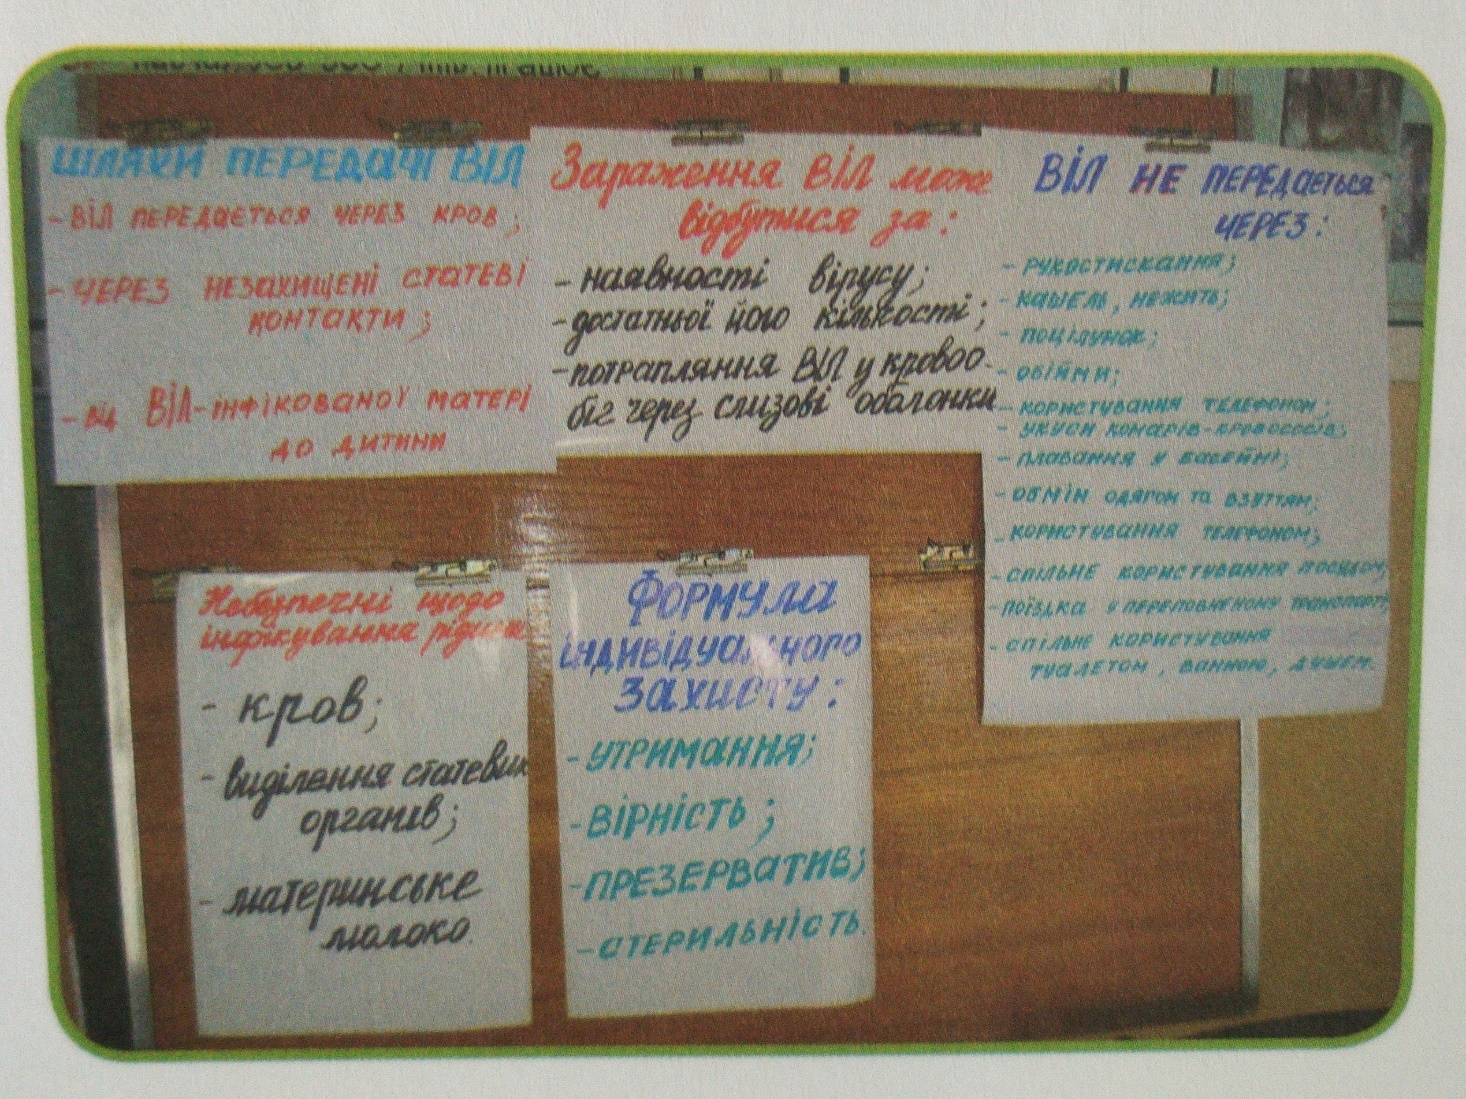 ШЛЯХИ ПЕРЕДАЧІ ВІЛ
- ВІЛ ПЕРЕДАЄТЬСЯ ЧЕРЕЗ КРОВ;
- ЧЕРЕЗ НЕЗАХИЩЕНІ СТАТЕВІ
КОНТАКТИ;
- ВІД ВІЛ-ІНФІКОВАНОЇ МАТЕРІ
ДО ДИТИНИ
Зараження ВІЛ може
відбутися за:
- наявності вірусу;
- достатньої його кількості;
- потрапляння ВІЛ у кровоо-
біг через слизові оболонки
ВІЛ НЕ ПЕРЕДАЄТЬСЯ
ЧЕРЕЗ:
- РУКОСТИСКАННЯ;
- КАШЕЛЬ, НЕЖИТЬ;
- ПОЦІЛУНОК;
- ОБІЙМИ;
- КОРИСТУВАННЯ ТЕЛЕФОНОМ;
- УКУСИ КОМАРІВ-КРОВОСОСІВ;
- ПЛАВАННЯ У БАСЕЙНІ;
- ОБМІН ОДЯГОМ ТА ВЗУТТЯМ;
- КОРИСТУВАННЯ ТЕЛЕФОНОМ;
- СПІЛЬНЕ КОРИСТУВАННЯ ПОСУДОМ;
- ПОЇЗДКА У ПЕРЕПОВНЕНОМУ ТРАНСПОРТІ;
- СПІЛЬНЕ КОРИСТУВАННЯ
ТУАЛЕТОМ, ВАННОЮ, ДУШЕМ.
Небезпечні щодо
інфікування рідини
- кров;
- виділення статевих
органів;
- материнське
молоко.
ФОРМУЛА
ІНДИВІДУАЛЬНОГО
ЗАХИСТУ:
- УТРИМАННЯ;
- ВІРНІСТЬ;
- ПРЕЗЕРВАТИВ;
- СТЕРИЛЬНІСТЬ.